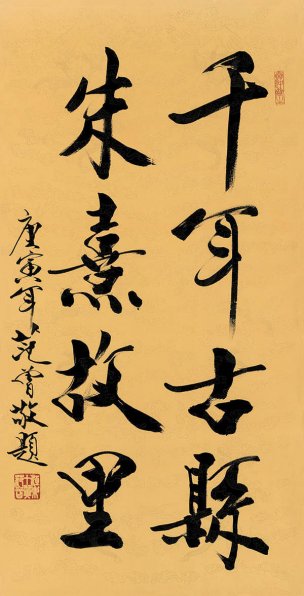 千年古縣
朱熹故里
庚寅年范曾敬題